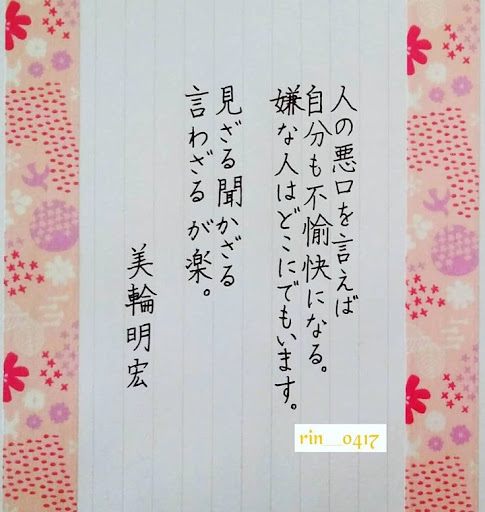 人の悪口を言えば
自分も不愉快になる。
嫌な人はどこにでもいます。
見ざる聞かざる
言わざるが楽。
美輪明宏
rin__0417